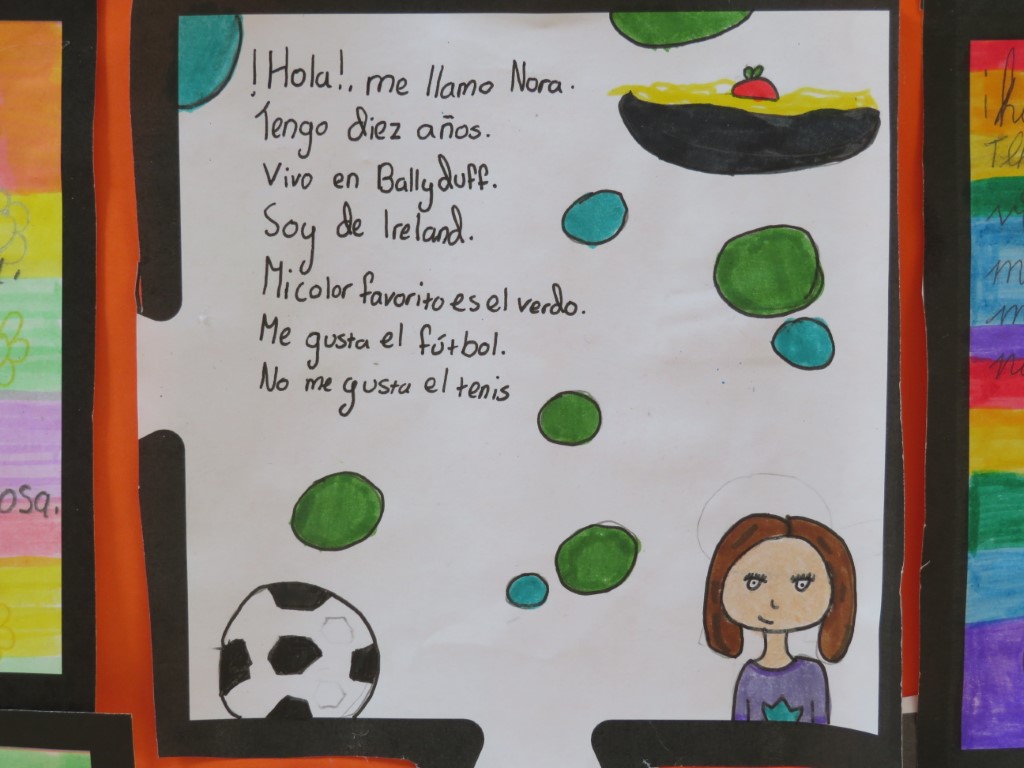 !Hola!, me llamo Nora.
Tengo diez años.
Vivo en Ballyduff.
Soy de Ireland.
Mi color favorito es el verdo.
Me gusta el fútbol.
No me gusta el tenis
osa.